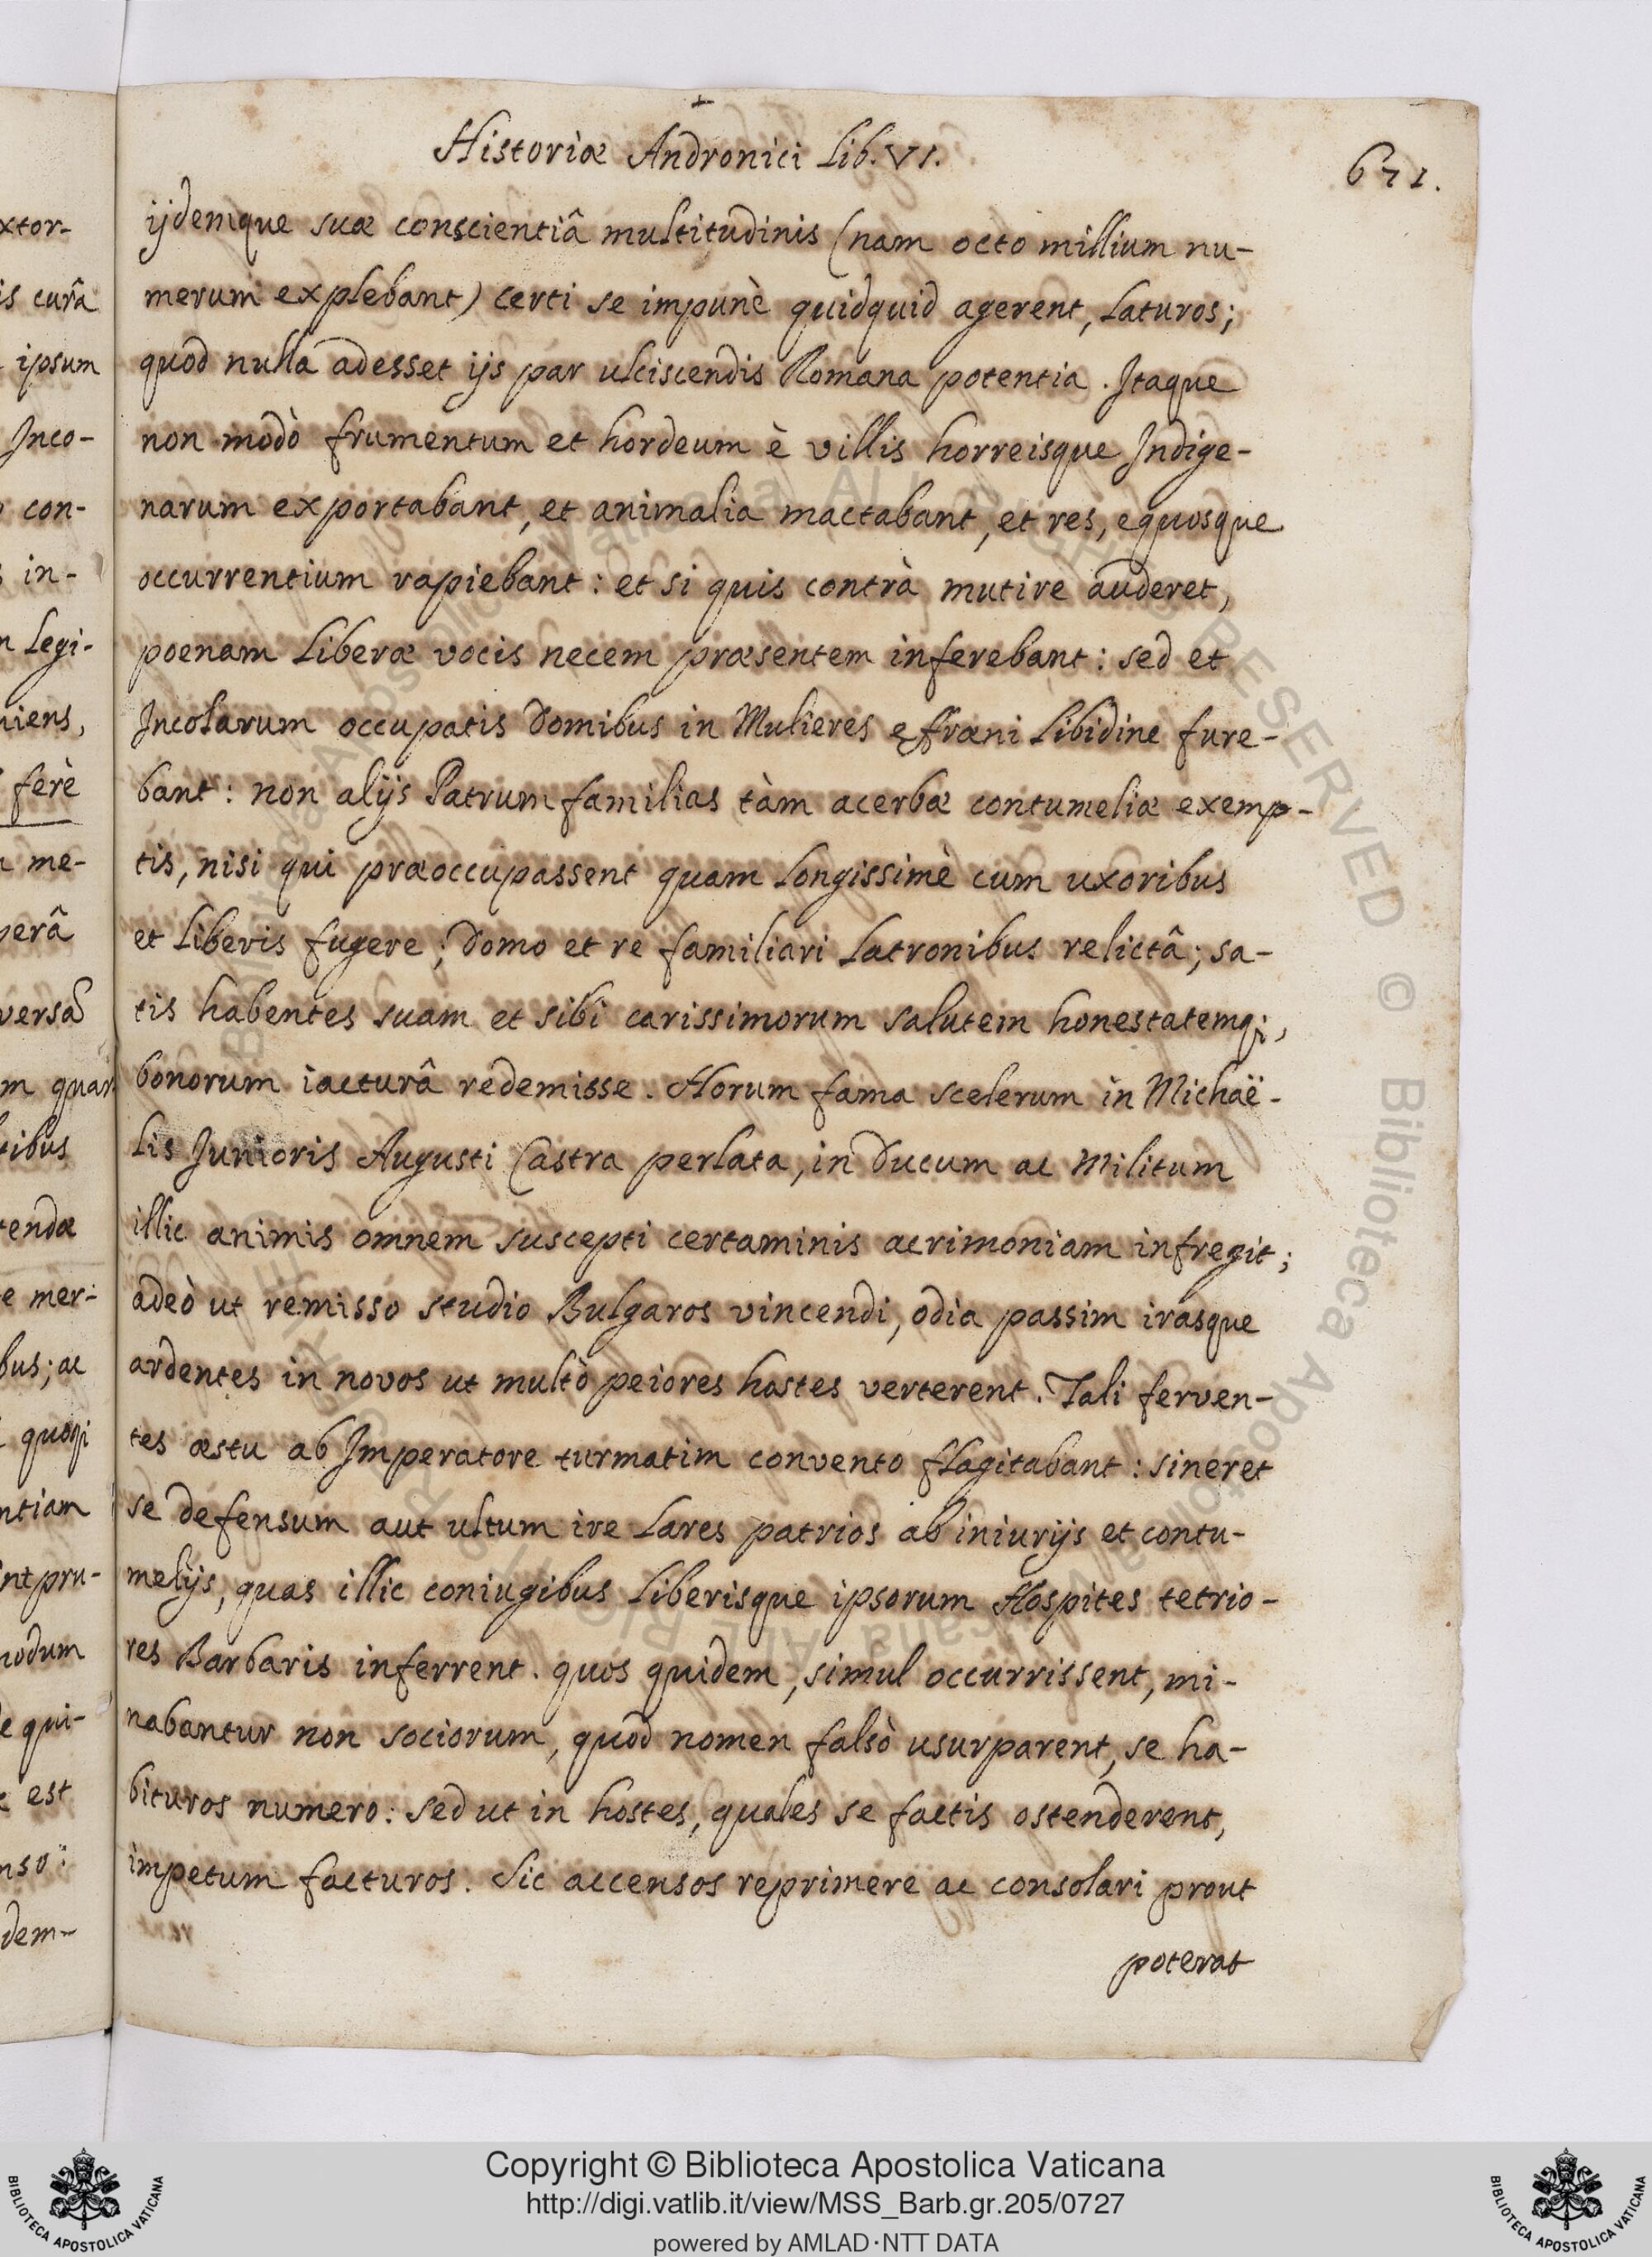 Historiæ Andronici Lib. VI.
671.
ijdemque suæ conscientiâ multitudinis (nam octo millium nu-
merum explebant) certi se impunè quidquid agerent, laturos;
quod nulla adesset ijs par ulciscendis Romana potentia. Itaque
non modò frumentum et hordeum è villis horreisque Indige-
narum exportabant, et animalia mactabant, et res, equosque
occurrentium rapiebant: et si quis contrà mutire auderet,
poenam liberæ vocis necem præsentem inferebant: sed et
Incolarum occupatis domibus in Mulieres effræni libidine fure-
bant: non alijs Patrumfamilias tàm acerbæ contumeliæ exemp-
tis, nisi qui præoccupassent quam longissimè cum uxoribus
et liberis fugere; domo et re familiari latronibus relictâ; sa-
tis habentes suam et sibi carissimorum salutem honestatemq;,
bonorum iacturâ redemisse. Horum fama scelerum in Michaë-
lis Junioris Augusti Castra perlata, in Ducum ac Militum
illic animis omnem suscepti certaminis acrimoniam infregit;
adeò ut remisso studio Bulgaros vincendi, odia passim irasque
ardentes in novos ut multò peiores hostes verterent. Tali ferven-
tes æstu ab Imperatore turmatim convento flagitabant: sineret
se defensum aut ultum ire Lares patrios ab iniurijs et contu-
melijs, quas illic coniugibus liberisque ipsorum Hospites tetrio-
res Barbaris inferrent. quos quidem, simul occurrissent, mi-
nabantur non sociorum, quod nomen falsò usurparent, se ha-
bituros numero: sed ut in hostes, quales se factis ostenderent,
impetum facturos. Sic accensos reprimere ac consolari prout
poterat
xtor-
is curâ
ipsum
Inco-
con-
in-
legi-
niens,
ferè
me-
perâ
versâ
m quam
tibus
tendæ
e mer-
bus; ac
quoq;
ntiam
int pru-
nodum
e qui-
est
nso:
dem-
Copyright © Biblioteca Apostolica Vaticana
http://digi.vatlib.it/view/MSS_Barb.gr.205/0727
powered by AMLAD·NTT DATA
BIBLIOTECA APOSTOLICA VATICANA
BIBLIOTECA APOSTOLICA VATICANA